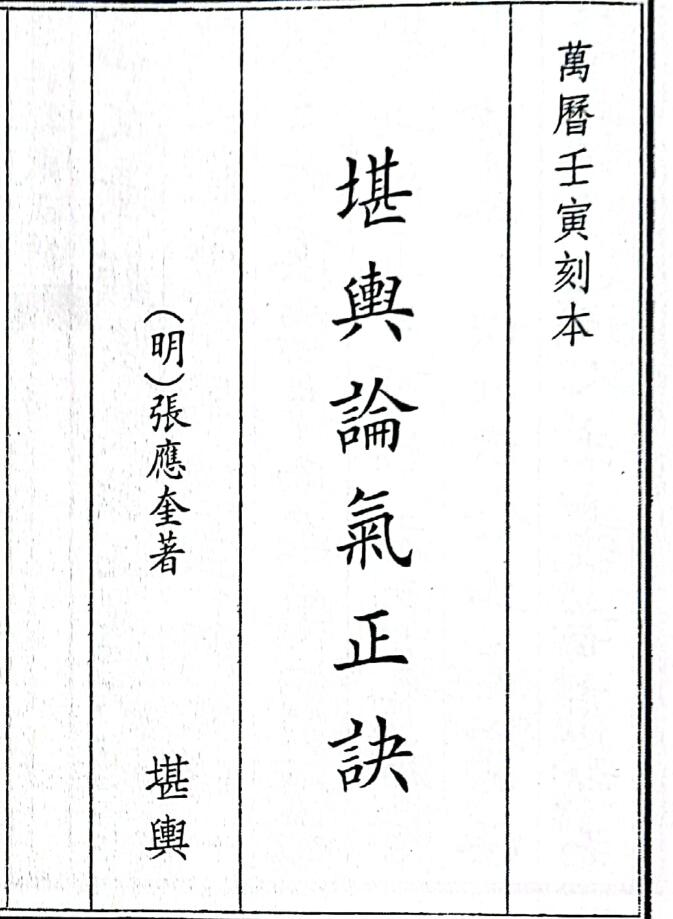 萬曆壬寅刻本
堪輿論氣正訣
(明)張應奎著
堪輿